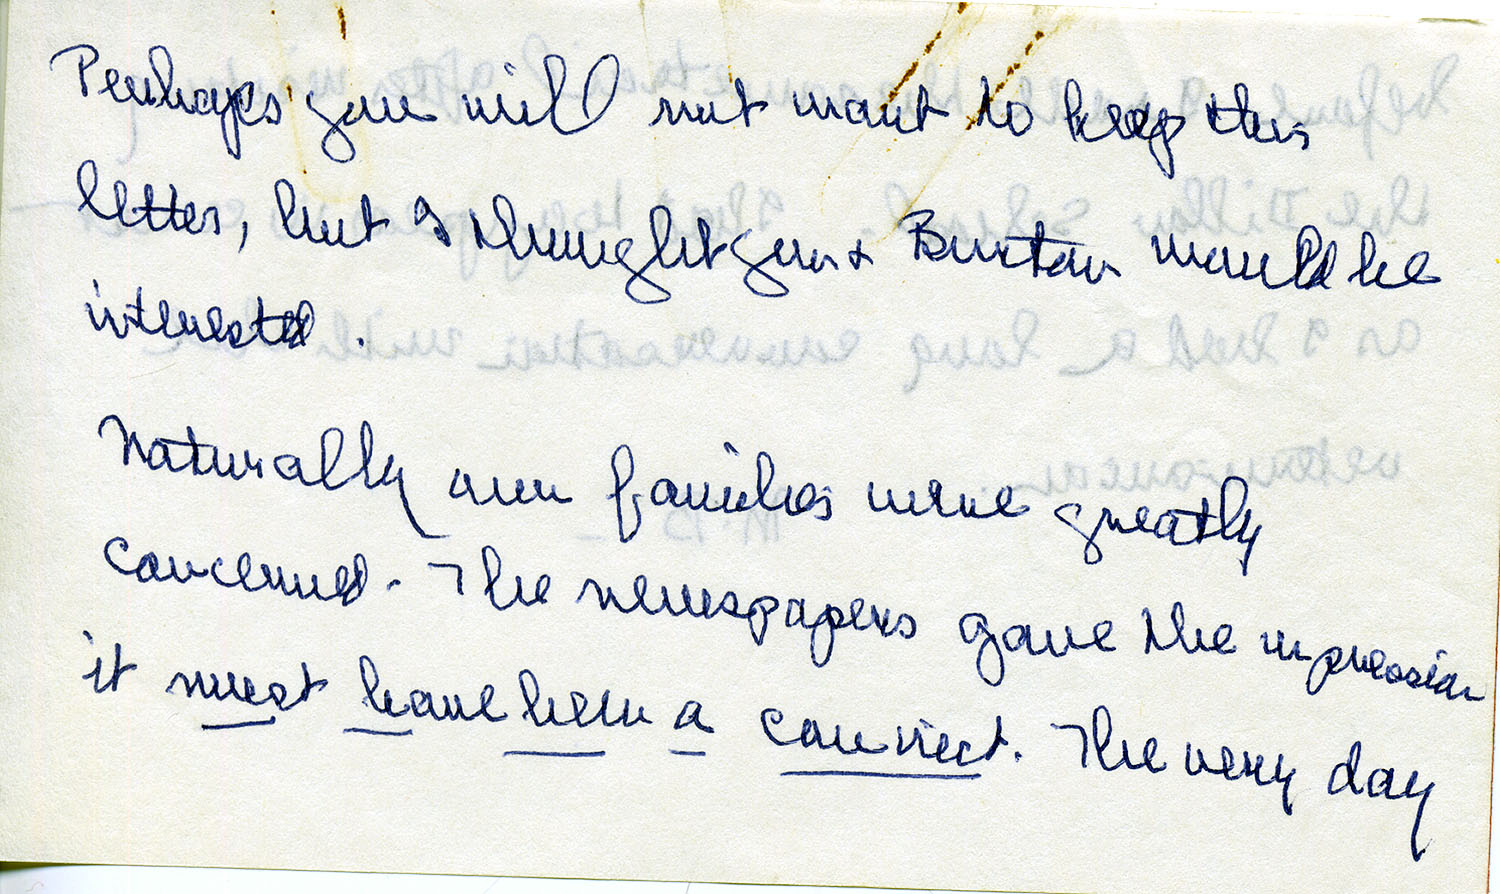 Perhaps you will not want to keep this
letter, but I thought you + Burton would be
interested.
Naturally our families were greatly
concerned. The newspapers gave the impression
it must have been a convict. The very day